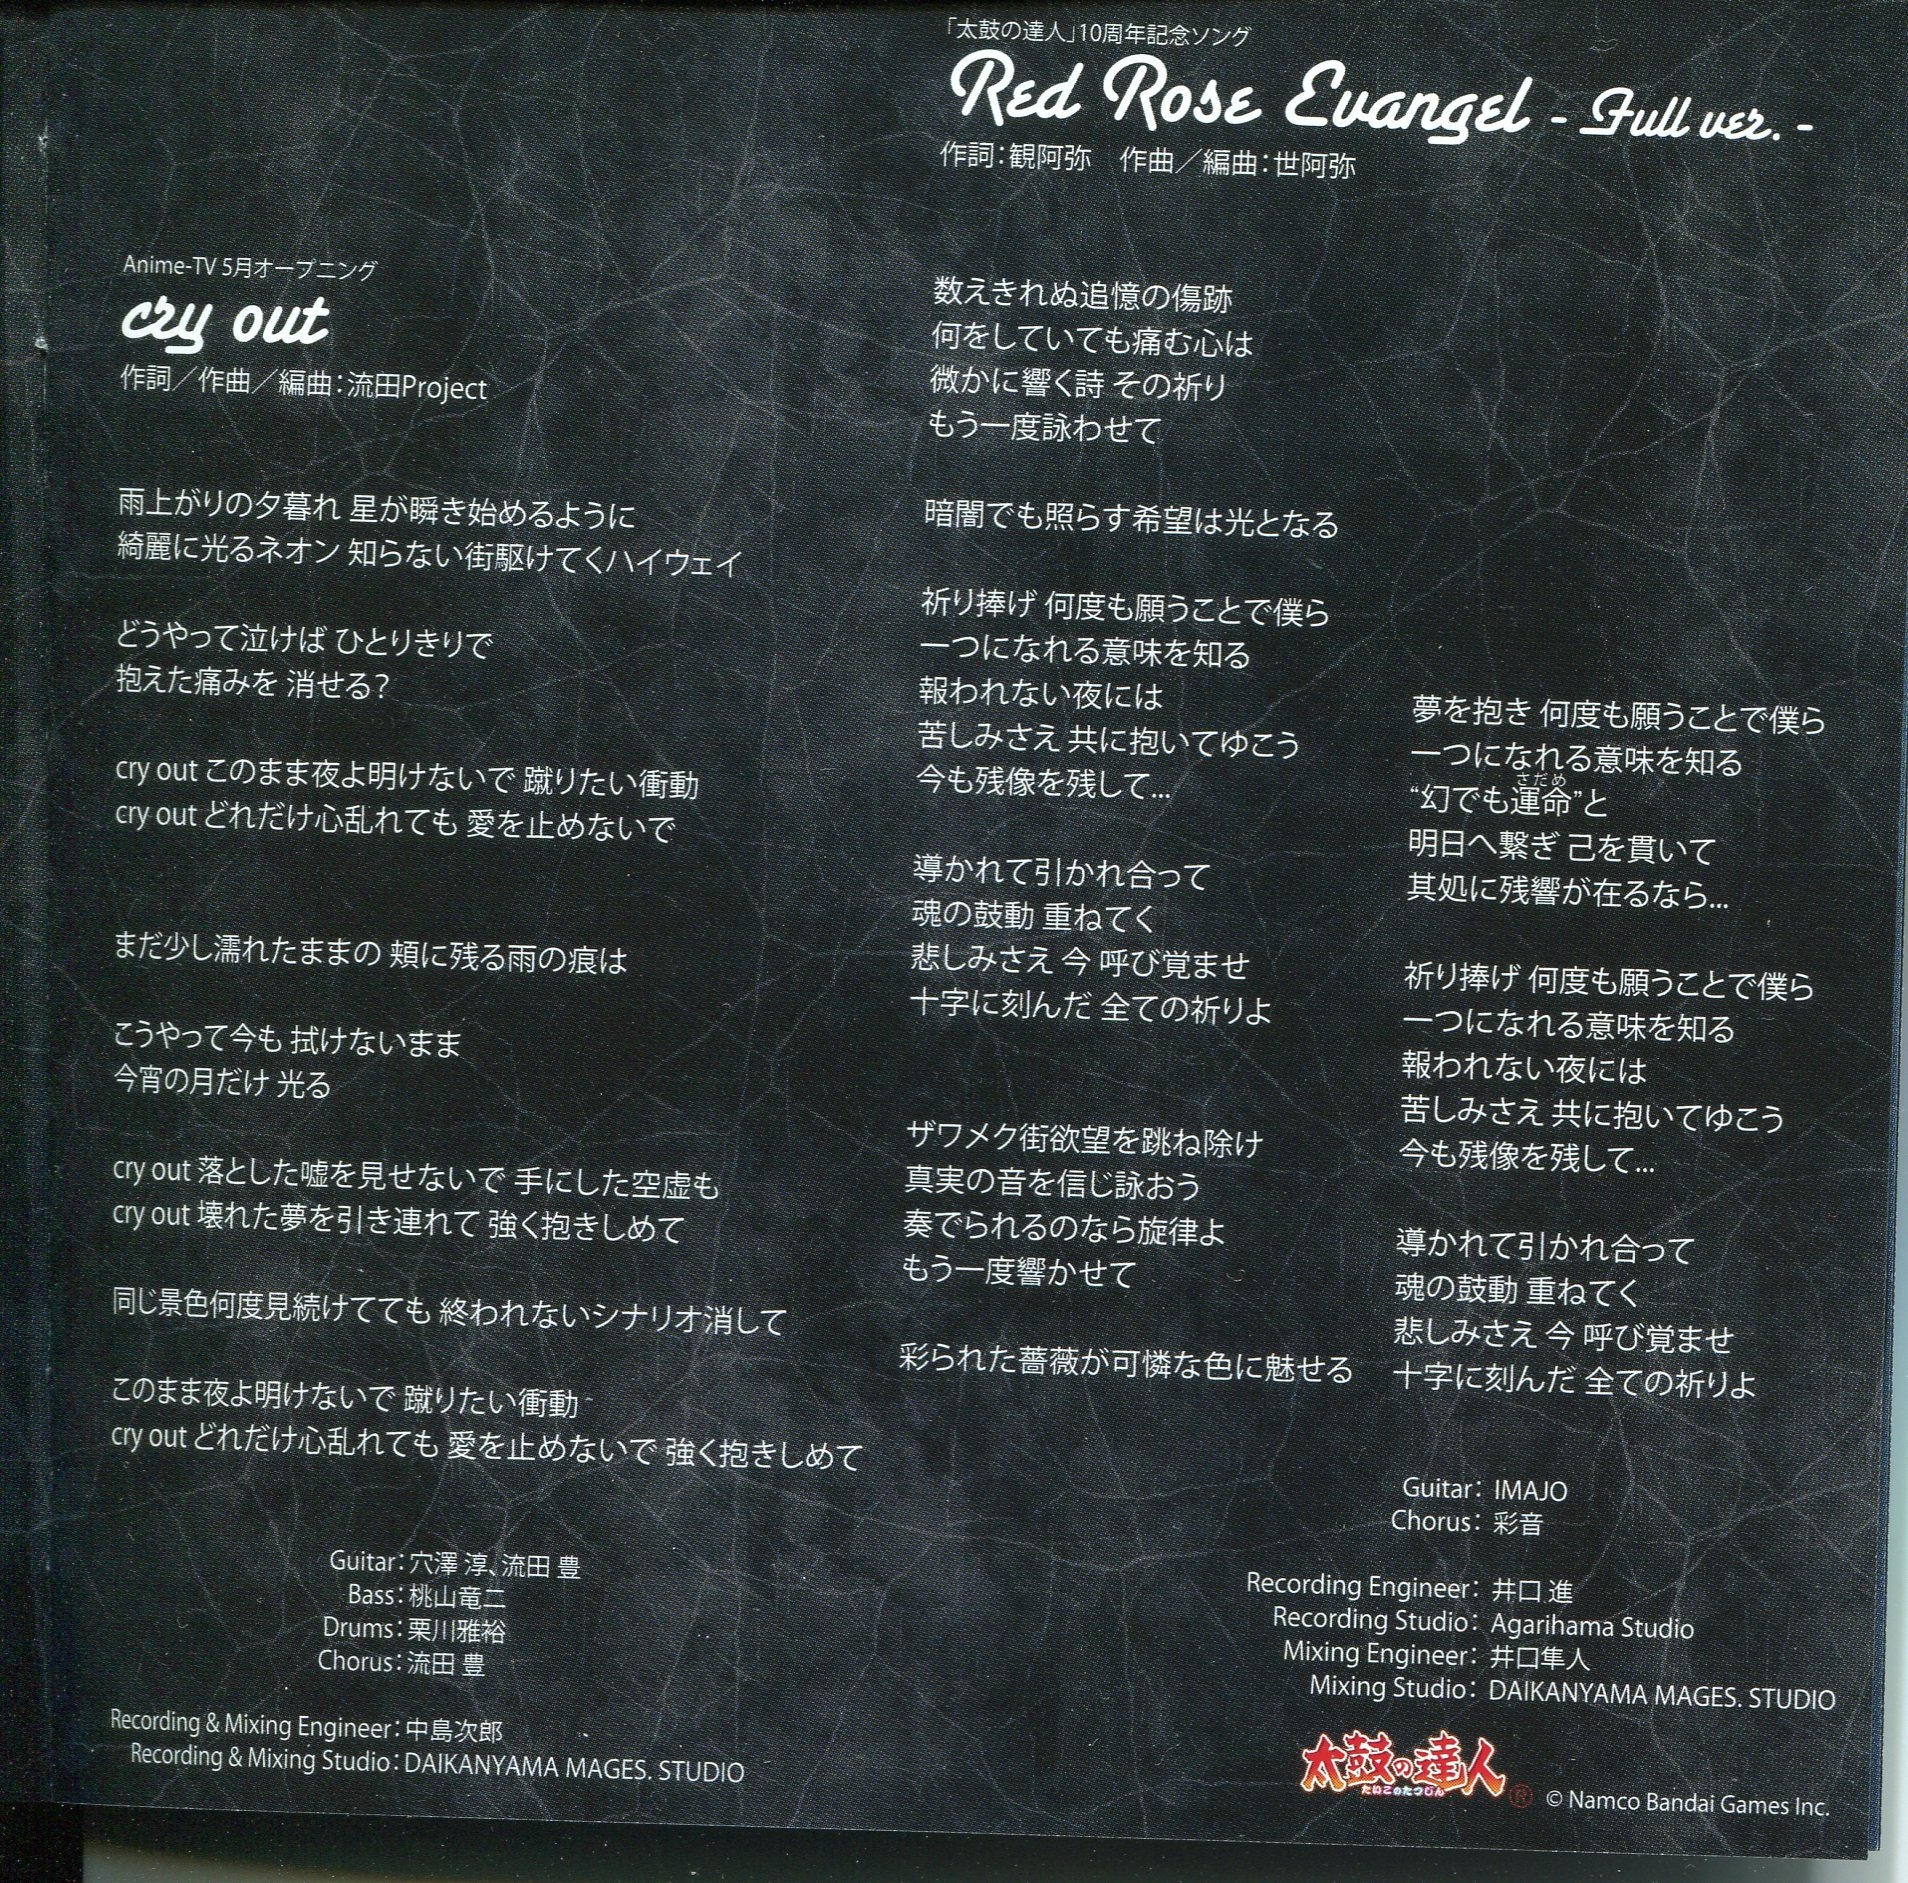 Anime-TV 5月オープニング
cry out
作詞／作曲／編曲：流田Project
雨上がりの夕暮れ 星が瞬き始めるように
綺麗に光るネオン 知らない街駆けてくハイウェイ
どうやって泣けば ひとりきりで
抱えた痛みを 消せる?
cry out このまま夜よ明けないで 蹴りたい衝動
cry out どれだけ心乱れても 愛を止めないで
まだ少し濡れたままの 頬に残る雨の痕は
こうやって今も 拭けないまま
今宵の月だけ 光る
cry out 落とした嘘を見せないで 手にした空虚も
cry out 壊れた夢を引き連れて 強く抱きしめて
同じ景色何度見続けてても 終われないシナリオ消して
このまま夜よ明けないで 蹴りたい衝動
cry out どれだけ心乱れても 愛を止めないで 強く抱きしめて
Guitar：穴澤 淳、流田 豊
Bass：桃山竜二
Drums：栗川雅裕
Chorus：流田 豊
Recording & Mixing Engineer：中島次郎
Recording & Mixing Studio：DAIKANYAMA MAGES. STUDIO
「太鼓の達人」10周年記念ソング
Red Rose Evangel - Full ver. -
作詞：観阿弥　作曲／編曲：世阿弥
数えきれぬ追憶の傷跡
何をしていても痛む心は
微かに響く詩 その祈り
もう一度詠わせて
暗闇でも照らす希望は光となる
祈り捧げ 何度も願うことで僕ら
一つになれる意味を知る
報われない夜には
苦しみさえ 共に抱いてゆこう
今も残像を残して…
導かれて引かれ合って
魂の鼓動 重ねてく
悲しみさえ 今 呼び覚ませ
十字に刻んだ 全ての祈りよ
ザワメク街欲望を跳ね除け
真実の音を信じ詠おう
奏でられるのなら旋律よ
もう一度響かせて
彩られた薔薇が可憐な色に魅せる
夢を抱き 何度も願うことで僕ら
一つになれる意味を知る
さだめ
“幻でも運命”と
明日へ繋ぎ 己を貫いて
其処に残響が在るなら…
祈り捧げ 何度も願うことで僕ら
一つになれる意味を知る
報われない夜には
苦しみさえ 共に抱いてゆこう
今も残像を残して…
導かれて引かれ合って
魂の鼓動 重ねてく
悲しみさえ 今 呼び覚ませ
十字に刻んだ 全ての祈りよ
Guitar： IMAJO
Chorus： 彩音
Recording Engineer： 井口 進
Recording Studio： Agarihama Studio
Mixing Engineer： 井口隼人
Mixing Studio： DAIKANYAMA MAGES. STUDIO
太鼓の達人
たいこのたつじん
®
© Namco Bandai Games Inc.